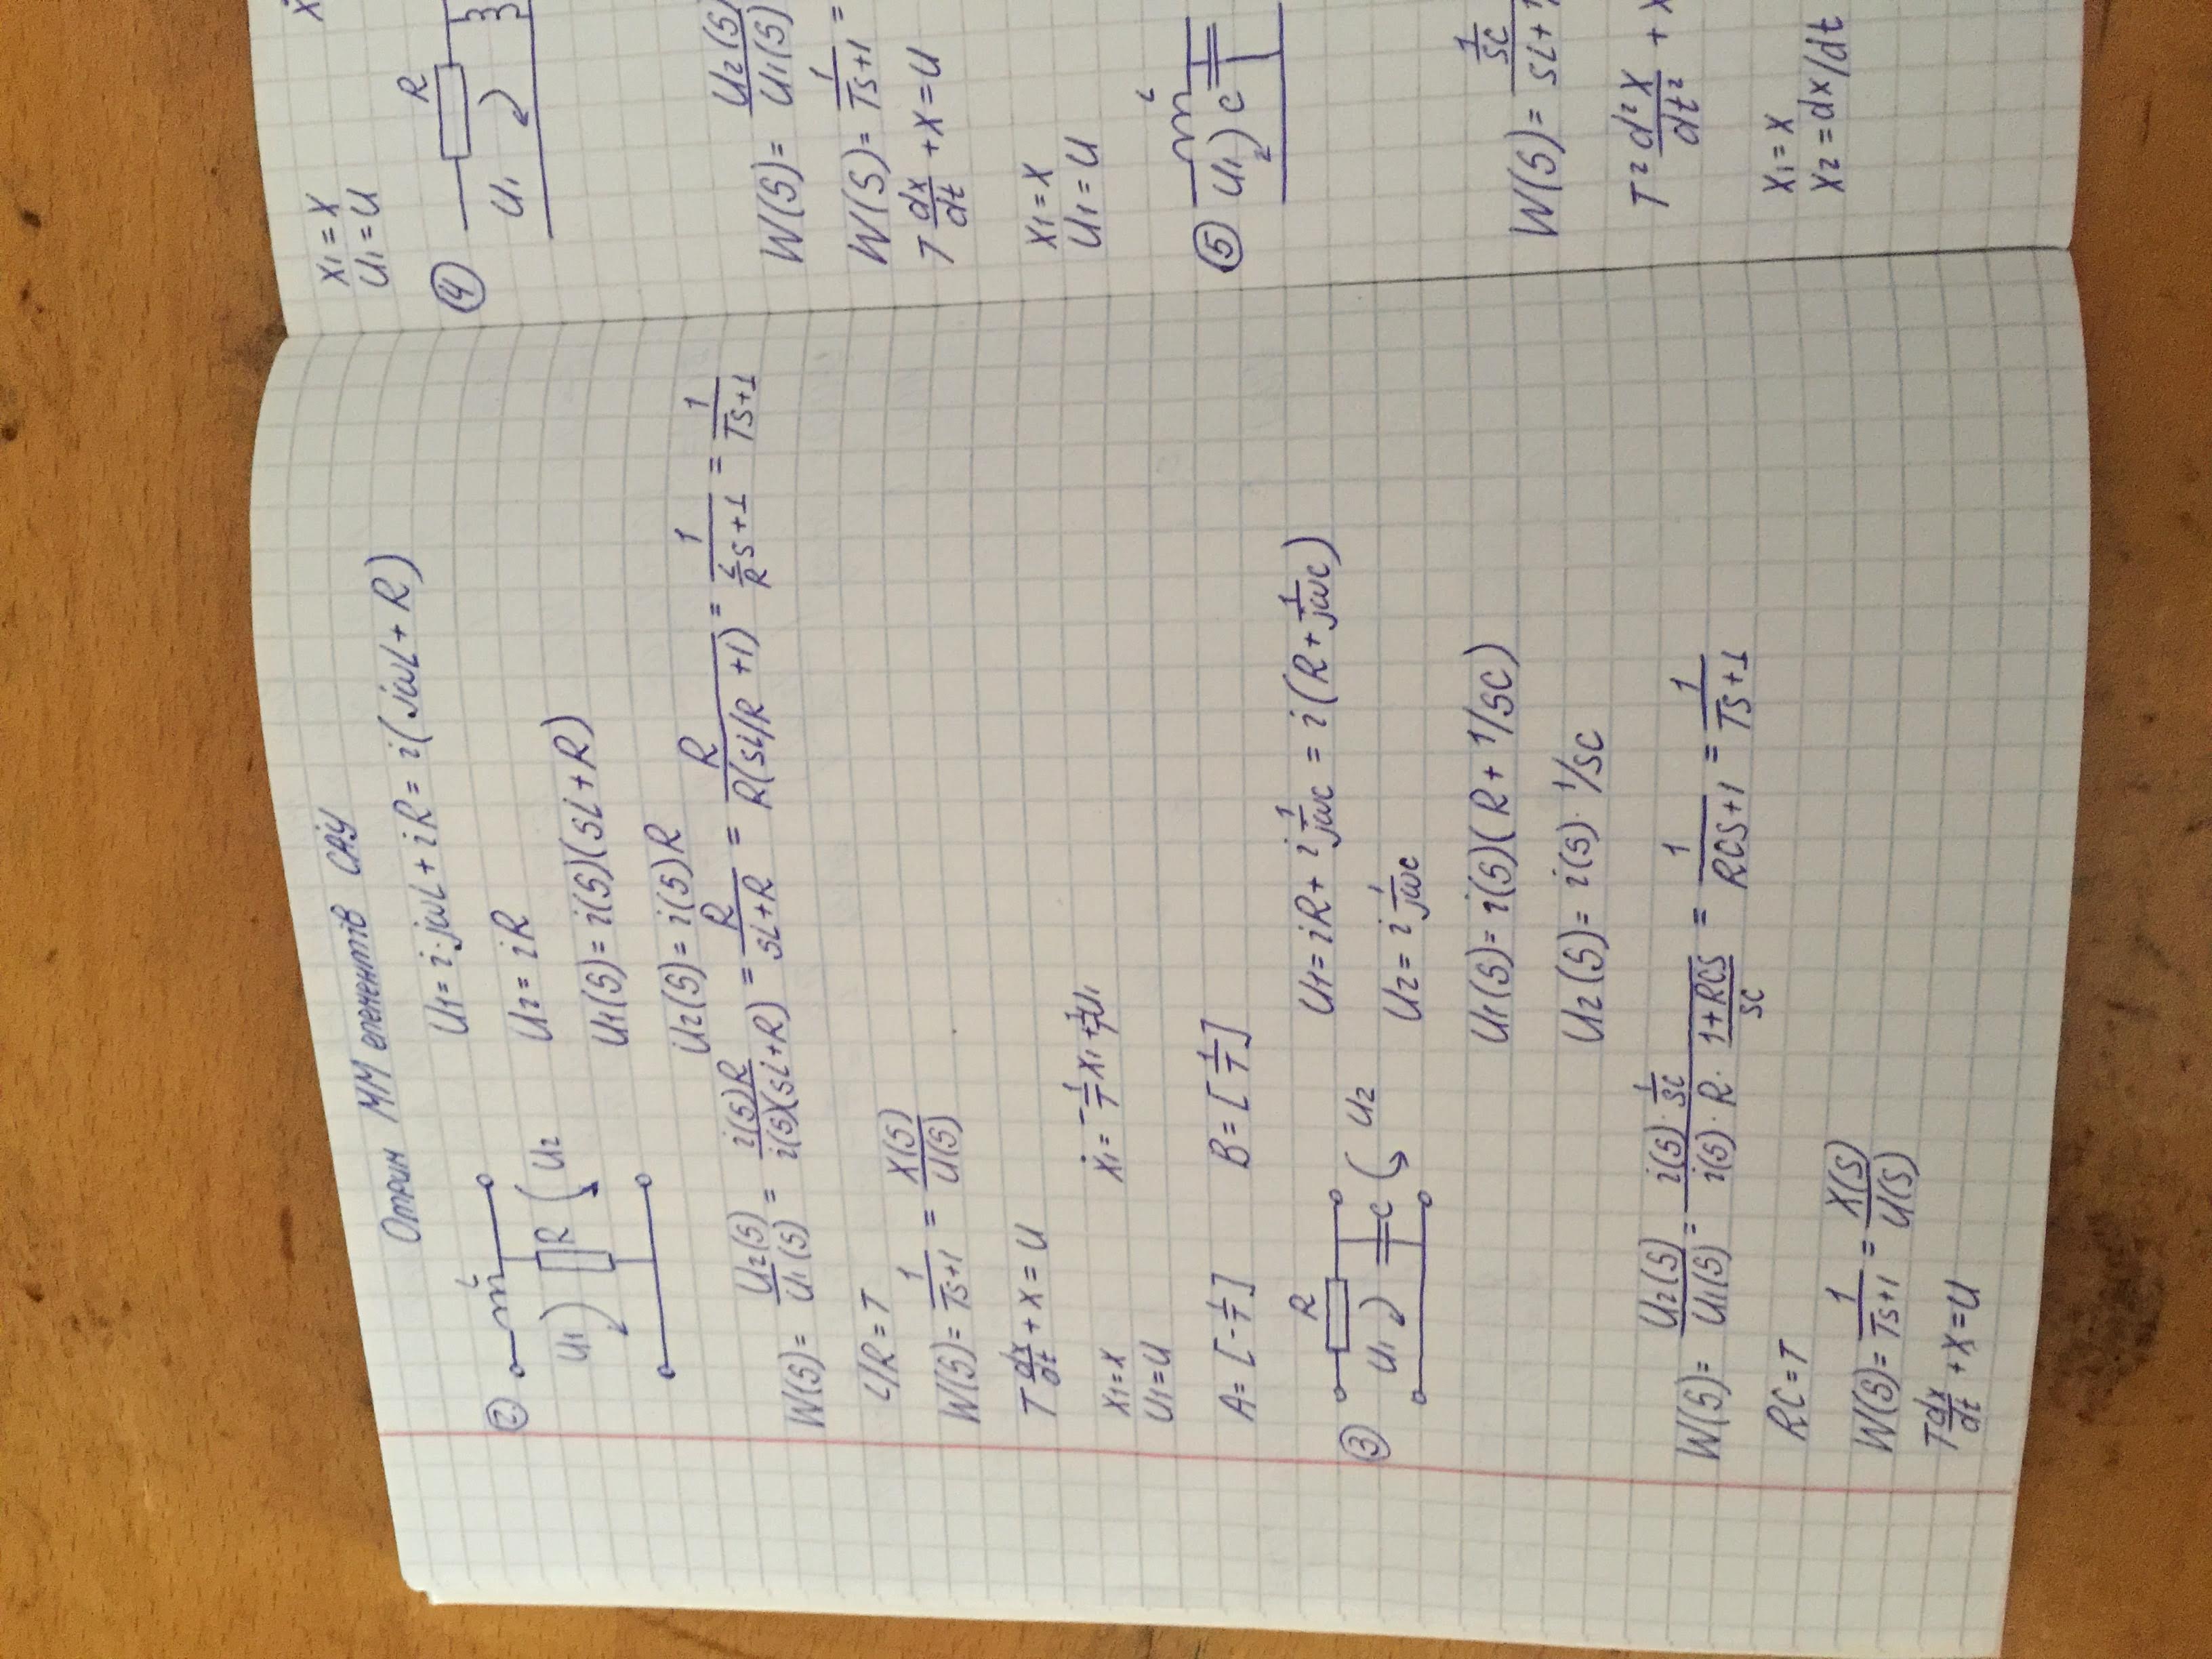 Отрим ММ елементів САУ
2
L
U1
R
U2
U1 = i·jωL + iR = i(jωL + R)
U2 = iR
U1(S) = i(S)(SL + R)
U2(S) = i(S)R
W(S) = U2(S)/U1(S) = i(S)R/i(S)(SL+R) = R/SL+R = R/R(SL/R +1) = 1/(L/R S+1) = 1/TS+1
L/R = T
W(S) = 1/TS+1 = X(S)/U(S)
T dx/dt + X = U
X1 = X
ẋ1 = -1/T X1 + 1/T U1
U1 = U
A = [-1/T] B = [1/T]
3
R
U1
C
U2
U1 = iR + i 1/jωC = i(R + 1/jωC)
U2 = i 1/jωC
U1(S) = i(S)(R + 1/SC)
U2(S) = i(S)· 1/SC
W(S) = U2(S)/U1(S) = i(S)· 1/SC / i(S)· R· 1+RCS/SC = 1/RCS+1 = 1/TS+1
RC = T
W(S) = 1/TS+1 = X(S)/U(S)
T dx/dt + X = U
X1 = X
U1 = U
4
R
U1
W(S) = U2(S)/U1(S)
W(S) = 1/TS+1 =
T dx/dt + X = U
X1 = X
U1 = U
5
L
U1
C
W(S) = 1/SC / SL + 1/
T² d²X/dt² + X
X1 = X
X2 = dx/dt